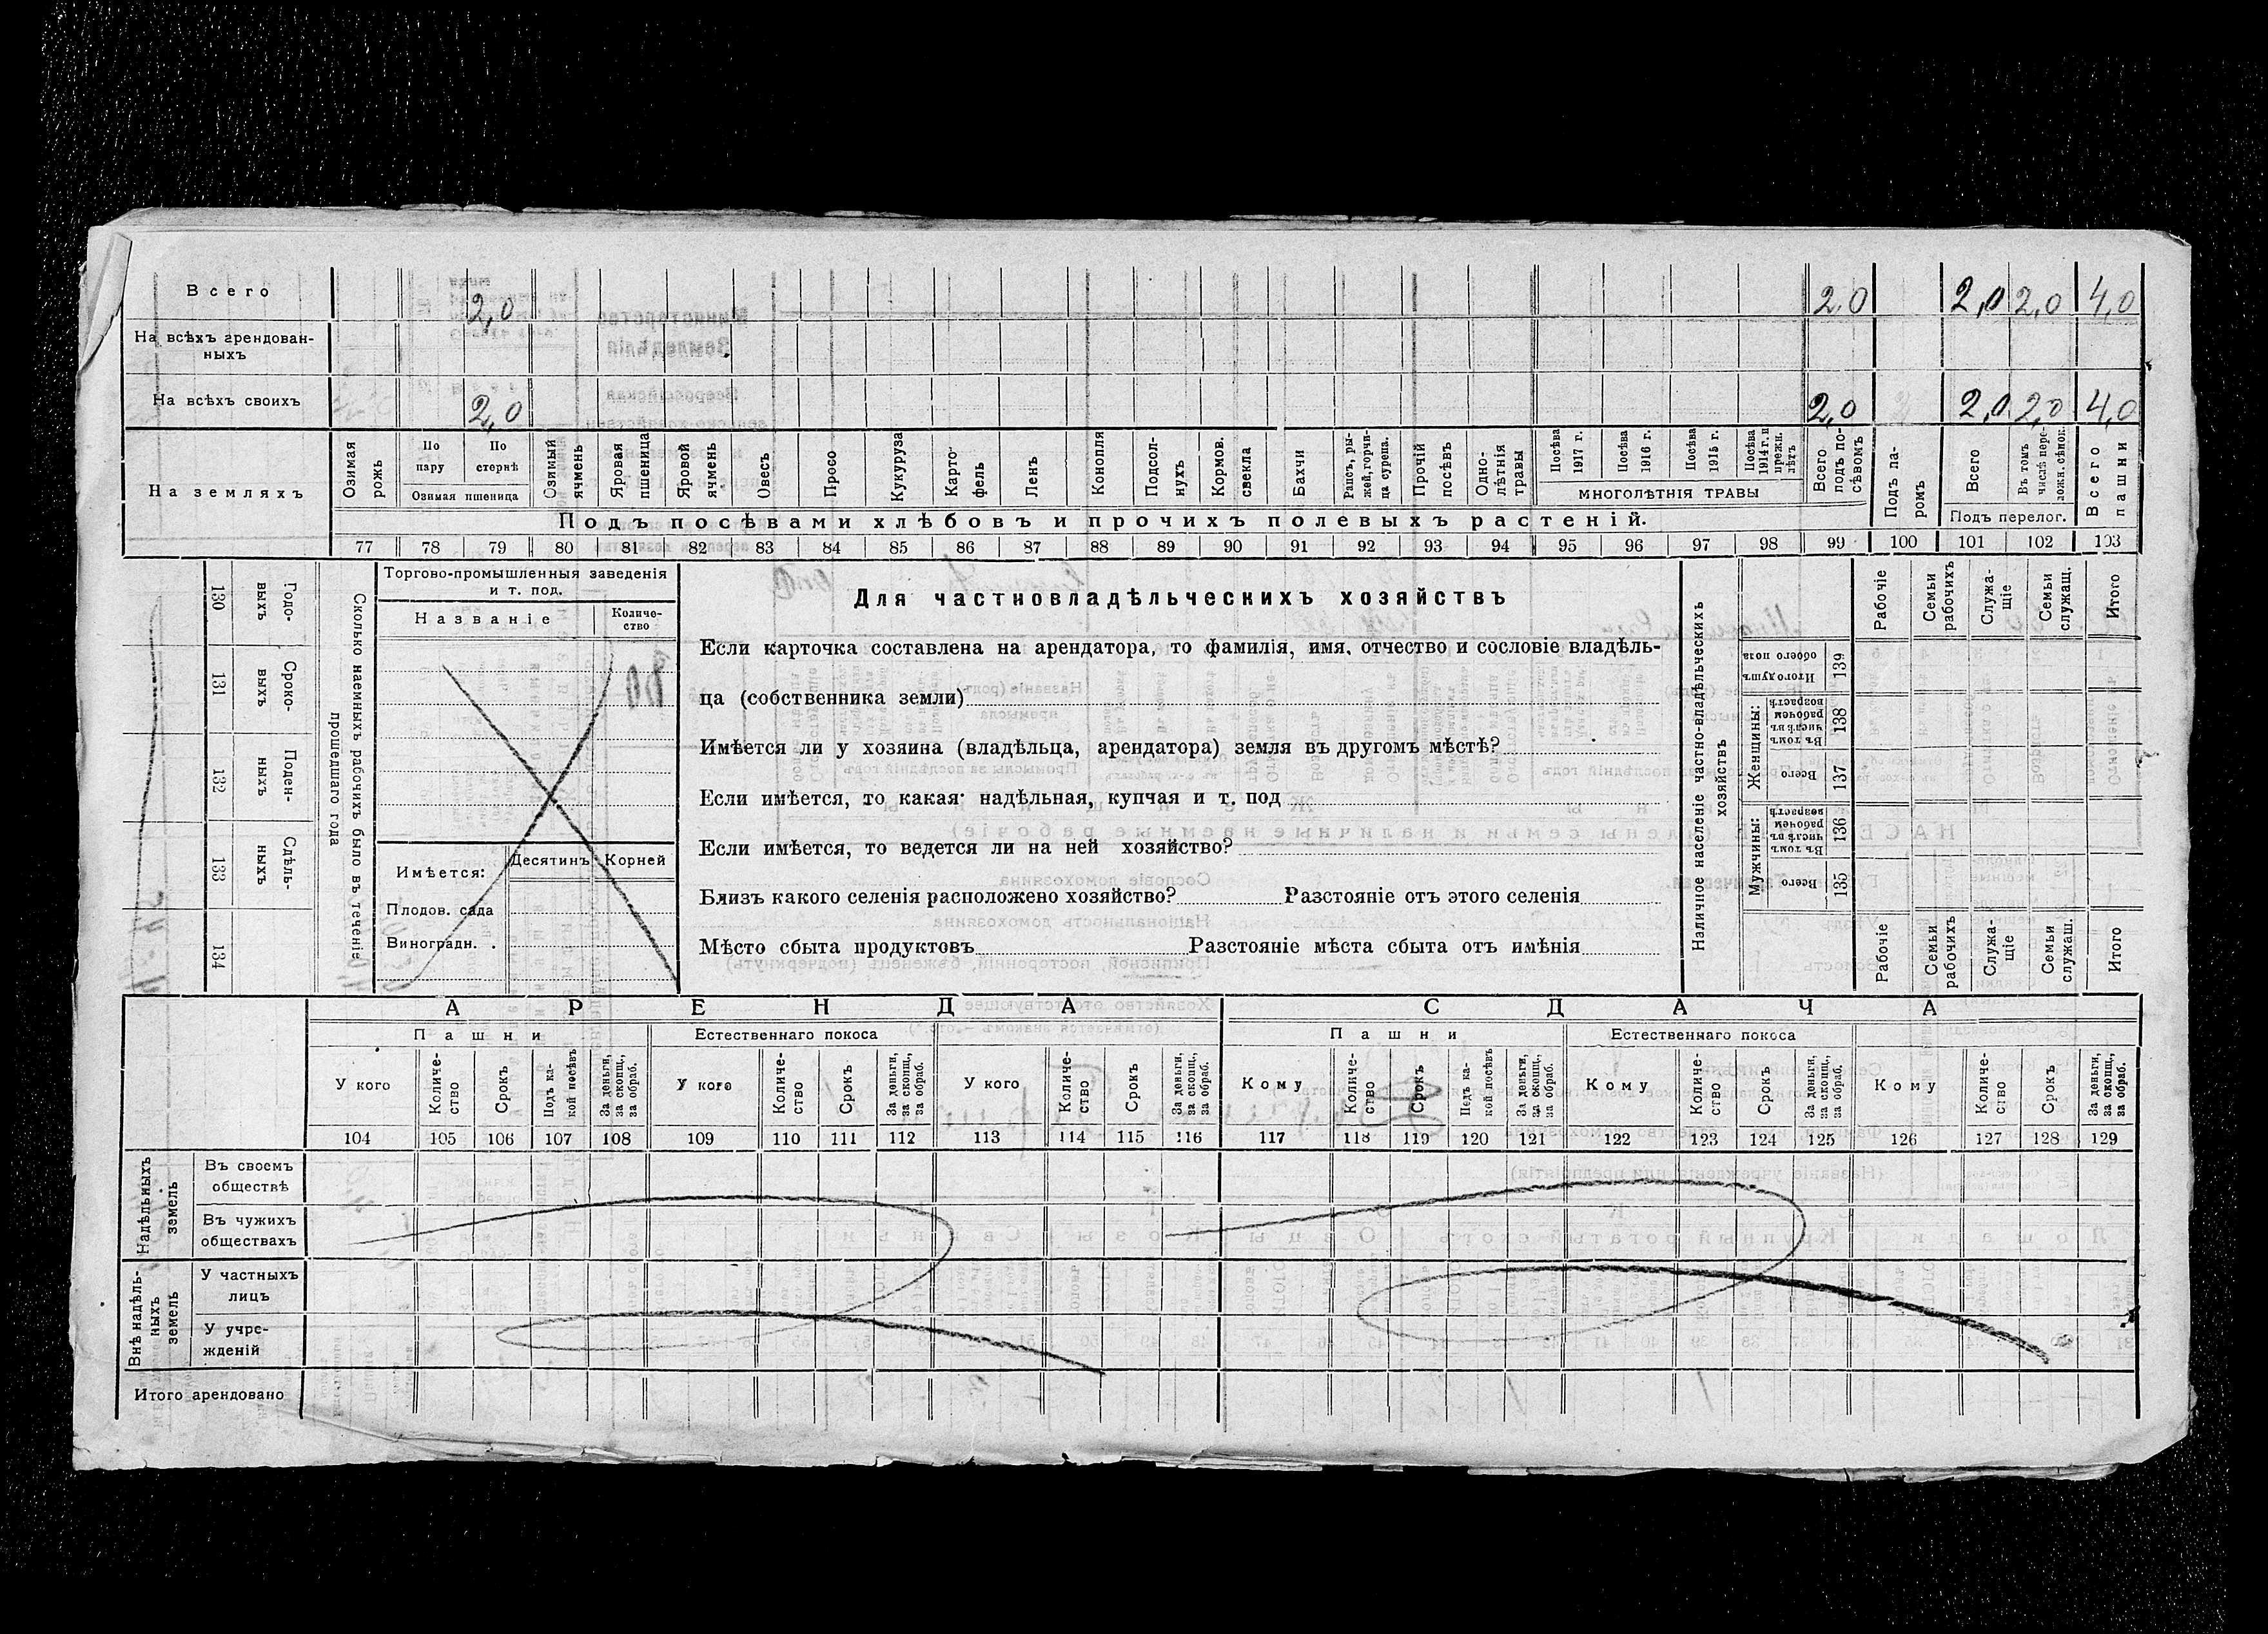 Всего 2,0 2,0 2,0 2,0 4,0
На всѣхъ арендован-
ныхъ
На всѣхъ своихъ 2,0 2,0 2,0 2,0 4,0
На земляхъ
Озимая рожь
По пару
По стернѣ
Озимая пшеница
Озимый ячмень
Яровая пшеница
Яровой ячмень
Овесъ
Просо
Кукуруза
Карто-
фель
Ленъ
Конопля
Подсол-
нухъ
Кормов. свекла
Бахчи
Рапсъ, ры-
жей, горчи-
ца сурепа.
Прочій посѣвъ
Одно-
лѣтнія травы
Посѣва 1917 г.
Посѣва 1916 г.
Посѣва 1915 г.
Посѣва 1914 г. и прежн. лѣтъ
МНОГОЛѢТНІЯ ТРАВЫ
Всего подъ по-
сѣвомъ
Подъ па-
ромъ
Всего
Въ томъ числѣ пере-
ложн. сѣнок.
Подъ перелог.
Всего пашни
Подъ посѣвами хлѣбовъ и прочихъ полевыхъ растеній.
77 78 79 80 81 82 83 84 85 86 87 88 89 90 91 92 93 94 95 96 97 98 99 100 101 102 103
Сколько наемныхъ рабочихъ было въ теченіе
прошедшаго года
Годо-
выхъ
130
Сроко-
выхъ
131
Поден-
ныхъ
132
Сдѣль-
ныхъ
133
134
Торгово-промышленныя заведенія
и т. под.
Названіе
Количе-
ство
Имѣется:
Десятинъ
Корней
Плодов. сада
Виноградн.
Для частновладѣльческихъ хозяйствъ
Если карточка составлена на арендатора, то фамилія, имя, отчество и сословіе владѣль-
ца (собственника земли)
Имѣется ли у хозяина (владѣльца, арендатора) земля въ другомъ мѣстѣ?
Если имѣется, то какая: надѣльная, купчая и т. под
Если имѣется, то ведется ли на ней хозяйство?
Близъ какого селенія расположено хозяйство? Разстояніе отъ этого селенія
Мѣсто сбыта продуктовъ Разстояніе мѣста сбыта отъ имѣнія
Наличное населеніе частно-владѣльческихъ
хозяйствъ
Итого душъ обоего пола
139
Женщины:
Въ томъ числѣ въ рабочемъ возрастѣ
138
Всего
137
Мужчины:
Въ томъ числѣ въ рабочемъ возрастѣ
136
Всего
135
Рабочіе
Семьи рабочихъ
Служа-
щіе
Семьи служащ.
Итого
Рабочіе
Семьи рабочихъ
Служа-
щіе
Семьи служащ.
Итого
АРЕНДА
СДАЧА
Пашни
Естественнаго покоса
Пашни
Естественнаго покоса
У кого
Количе-
ство
Срокъ
Подъ ка-
кой посѣвъ
За деньги, за скопщ., за обраб.
У кого
Количе-
ство
Срокъ
За деньги, за скопщ., за обраб.
У кого
Количе-
ство
Срокъ
За деньги, за скопщ., за обраб.
Кому
Количе-
ство
Срокъ
Подъ ка-
кой посѣвъ
За деньги, за скопщ., за обраб.
Кому
Количе-
ство
Срокъ
За деньги, за скопщ., за обраб.
Кому
Количе-
ство
Срокъ
За деньги, за скопщ., за обраб.
104 105 106 107 108 109 110 111 112 113 114 115 116 117 118 119 120 121 122 123 124 125 126 127 128 129
Надѣльныхъ
земель
Въ своемъ
обществѣ
Въ чужихъ
обществахъ
Внѣ надѣль-
ныхъ
земель
У частныхъ
лицъ
У учре-
жденій
Итого арендовано